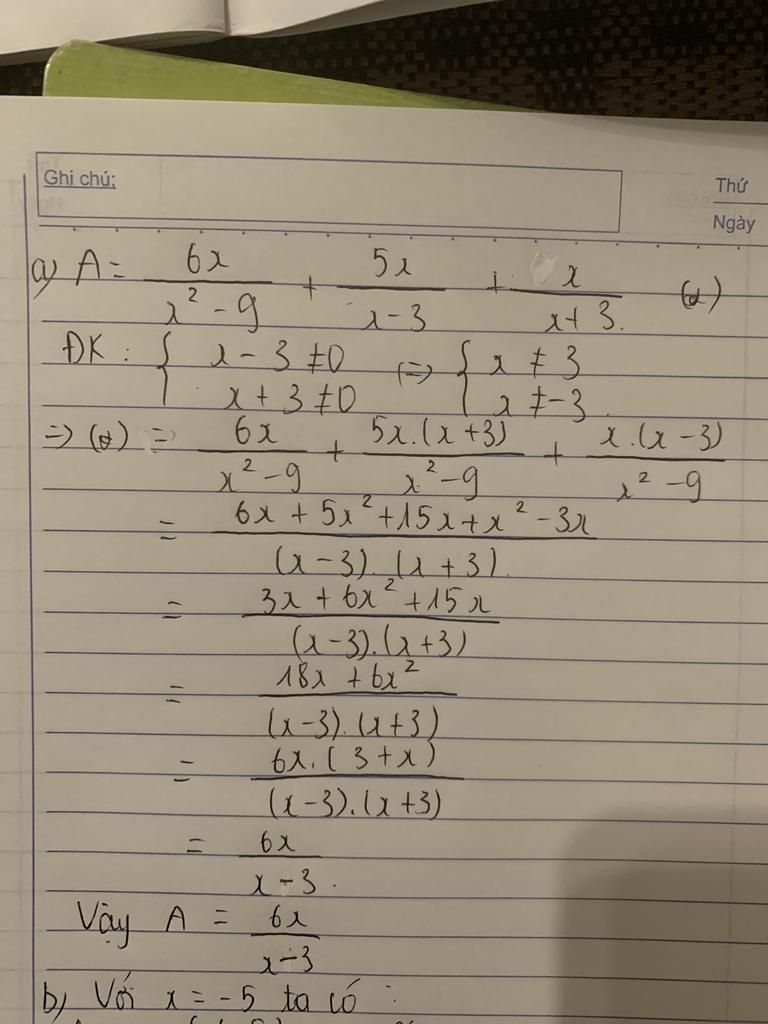 Ghi chú:
Thứ
Ngày
a) A = 6x/(x² - 9) + 5x/(x - 3) + x/(x + 3). (*)
ĐK : { x - 3 ≠ 0 <=> { x ≠ 3
x + 3 ≠ 0 x ≠ -3
=> (*) = 6x/(x² - 9) + 5x.(x + 3)/(x² - 9) + x.(x - 3)/(x² - 9)
= (6x + 5x² + 15x + x² - 3x)/((x - 3).(x + 3))
= (3x + 6x² + 15x)/((x - 3).(x + 3))
= (18x + 6x²)/((x - 3).(x + 3))
= 6x.(3 + x)/((x - 3).(x + 3))
= 6x/(x - 3).
Vậy A = 6x/(x - 3)
b) Với x = -5 ta có :